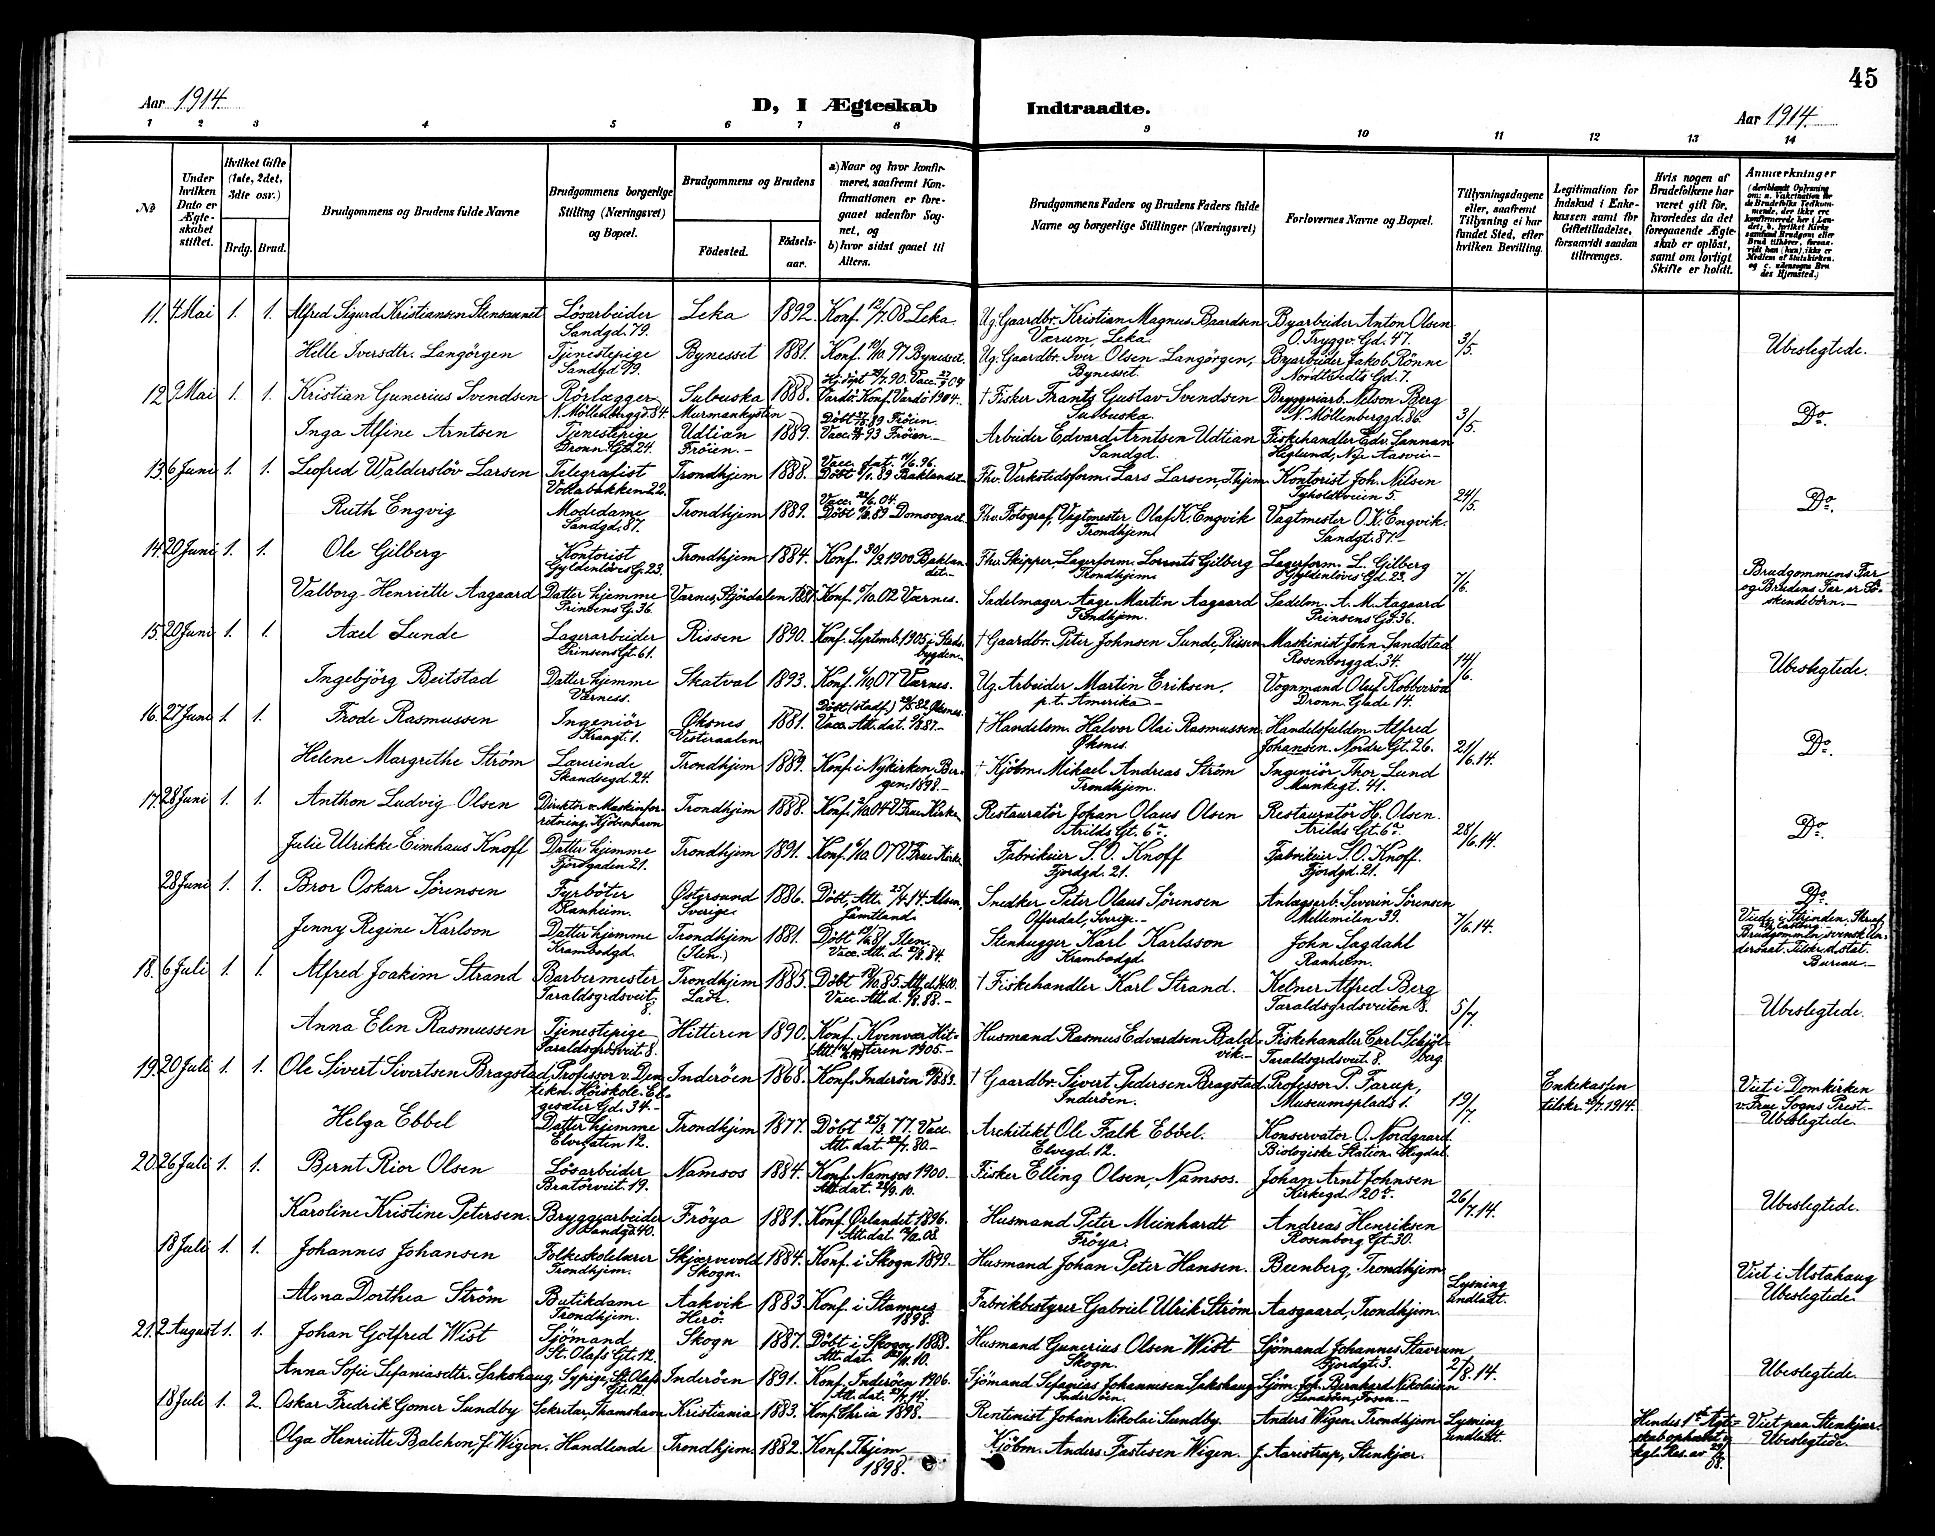 45
Aar 1914.
D, I Ægteskab Indtraadte.
Aar 1914.
1 2 3 4 5 6 7 8 9 10 11 12 13 14
№
Under hvilken Dato er Ægteskabet stiftet.
Hvilket Gifte (1ste, 2det, 3die osv.)
Brdg. Brud.
Brudgommens og Brudens fulde Navne
Brudgommens borgerlige Stilling (Næringsvei) og Bopæl.
Brudgommens og Brudens
Fødested.
Fødselsaar.
a) Naar og hvor konfirmeret, saafremt Konfirmationen er foregaaet udenfor Sognet, og
b) hvor sidst gaaet til Alters.
Brudgommens Faders og Brudens Faders fulde Navne og borgerlige Stillinger (Næringsvei)
Forlovernes Navne og Bopæl.
Tillysningsdagene eller, saafremt Tillysning ei har fundet Sted, efter hvilken Bevilling.
Legitimation for Indskud i Enkekassen samt for Giftetilladelse, forsaavidt saadan tiltrænges.
Hvis nogen af Brudefolkene har været gift før, hvorledes da det foregaaende Ægteskab er opløst, samt om lovligt Skifte er holdt.
Anmærkninger
11. 4 Mai 1. 1. Alfred Sigurd Kristiansen Stensaunet Løsarbeider Sandgd. 79. Leka 1892. Konf. 12/7. 08 Leka. Ug. Gaardbr. Kristian Magnus Baardsen Værum, Leka. Byarbeider Anton Olsen O. Tryggv. Gd. 47. 3/5. Ubeslegtede.
Helle Iversdtr. Langörgen Tjenestepige Sandgd. 79. Bynesset 1881. Konf. 10/10. 97 Bynesset. Ug. Gaardbr. Iver Olsen Langörgen, Bynesset Byarbeider Jakob Rönne Nordtvedts Gd. 7.
12 2 Mai 1. 1. Kristian Gunerius Svendsen Rörlægger N. Möllenberggd. 84. Sulbuska Murmankysten 1888. Vardö. Konf. Vardö 1904. † Fisker Frants Gustav Svendsen Sulbuska. Bryggeriarb. Nilson Berg N. Möllenberggd. 86. 3/5. Do.
Inga Alfine Arntsen Tjenestepige Dronn. Gd. 24. Udtian Fröien. 1889. Döbt 27/8. 89 Fröien. Vacc. 93 Fröien. Arbeider Edvard Arntsen Udtian Sandgd. Fiskehandler Edv. Sannan Heglund, Nye Aasvei
13. 6 Juni 1. 1. Leofred Walderslöv Larsen Telegrafist Voldabakken 22. Trondhjem 1888. Döbt 89 Baklandet Fhv. Verkstedsform. Lars Larsen, Thjem. Kontorist Joh. Nilsen Tyholdtveien 5. 24/5. Do.
Ruth Engvig Modedame Sandgd. 87. Trondhjem 1889. Vacc. 04. Döbt 89 Domsognet. Fhv. Fotograf, Vagtmester Olaf K. Engvik Trondhjem Vagtmester O. K. Engvik. Sandgt. 87.
14. 20 Juni 1. 1. Ole Gilberg Kontorist Gyldenlövesg. 23. Trondhjem 1884. Konf. 30/9. 1900. Baklandet. Fhv. Skipper, Lagerform. Lorents Gilberg Trondhjem Lagerform. L. Gilberg Gyldenlöves Gd. 23. 7/6. Brudgommens Far og Brudens Far er Söskendebörn.
Valborg Henriette Aagaard Datter hjemme Prinsens G. 36. Værnes, Stjördalen 1887. Konf. 10. 02 Værnes. Sadelmager Aage Martin Aagaard Trondhjem. Sadelm. A. M. Aagaard Prinsens Gd. 36.
15. 20 Juni 1. 1. Axel Sunde Lagerarbeider Prinsens Gt. 61. Rissen 1890. Konf. Septemb. 1905 i Stadsbygden. † Gaardbr. Peter Johnsen Sunde, Rissen Maskinist John Sandstad Rosenborggd. 34. 14/6. Ubeslegtede.
Ingebjörg Beitstad Datter hjemme Værness. Skatval 1893. Konf. 6/10. 07 Værnes. Ug. Arbeider Martin Eriksen. p.t. Amerika Vognmand Oluf Kobberöd Dronn. Glade 14.
16. 27 Juni 1. 1. Frode Rasmussen Ingeniör Krangt. 1. Øksnes Vesteraalen 1881. Vacc. Att. dat. 87. † Handelsm. Halvor Olai Rasmussen Øksnes. Handelsfuldm. Alfred Johansen. Nordre Gt. 26. 21/6. 14. Do.
Helene Margrethe Ström Lærerinde Skandsegd. 24. Trondhjem 1889. Konf. i Nykirken Bergen 1898. † Kjöbm. Mikael Andreas Ström Trondhjem. Ingeniör Thor Lund Munkegt. 41.
17. 28 Juni 1. 1. Anthon Ludvig Olsen Direktör v. Maskinforretning. Kjöbenhavn Trondhjem 1888. Konf. 2/10. 04 V. Frue Kirke Restauratör Johan Olaus Olsen Arilds Gt. 6a. Restauratör H. Olsen. Arilds Gt. 6a. 28/6. 14. Do.
Julie Ulrikke Eimhaus Knoff Datter hjemme Fjordgaden 21. Trondhjem 1891. Konf. 6/10. 07 V. Frue Kirke Fabrikeier S. O. Knoff Fjordgd. 21. Fabrikeier S. O. Knoff. Fjordgd. 21.
28 Juni 1. 1. Bror Oskar Sörensen Fyrböter Ranheim. Østgrsund Sverige 1886. Döbt. Att. 25/4. 14. Alsen, Jämtland. Snedker Peter Olaus Sörensen Offerdal, Sverige. Anlægsarb. Severin Sörensen Mellemilen 39. 7/6. 14. Do.
Jenny Regine Karlson Datter hjemme Krambodgd. Trondhjem (Ilen.) 1881. Döbt 81 Ilen. Vacc. Att. d. 84. Stenhugger Karl Karlsson Krambodgd John Sagdahl Ranheim. Brudgommen svensk Undersaat. Tilskr. d. stat. Bureau.
18. 6 Juli 1. 1. Alfred Joakim Strand Barbermester Taraldsgrdsveit. 8. Trondhjem Lade. 1885. Döbt 18/10. 85. Vacc. Att. d. 88. † Fiskehandler Karl Strand. Kelner Alfred Berg Taraldsgrdsveiten 8. 5/7. Ubeslegtede.
Anna Elen Rasmussen Tjenestepige Taraldsgrdsveit. 8. Hitteren 1890. Konf. Kvenvær Hitteren 1905. Husmand Rasmus Edvardsen Baldvik. Fiskehandler Carl Schjölberg Taraldsgrdsveit. 8.
19. 20 Juli 1. 1. Ole Sivert Sivertsen Bragstad Professor v. Den tekn. Höiskole. Elgesæter Gd. 34. Inderöen 1868. Konf. Inderöen 83. † Gaardbr. Sivert Pedersen Bragstad Inderöen. Professor P. Farup, Museumsplads 1. 19/7. Enkekassen tilskr. 20/7. 1914. Viet i Domkirken v. Frue Sogns Prest. Ubeslegtede.
Helga Ebbel Datter hjemme Elvegaten 12. Trondhjem 1877. Döbt 25/3. 77. Vacc. Att. dat. 80. Architekt Ole Falk Ebbel. Elvegd. 12. Konservator O. Nordgaard Biologiske Station.
20. 26 Juli 1. 1. Bernt Rior Olsen Løsarbeider Bratörveit. 19. Namsos 1884. Konf. Namsos 1900. Att. dat. 10. Fisker Elling Olsen, Namsos. Johan Arnt Johnsen Kirkegd. 20c. 26/7. 14. Ubeslegtede.
Karoline Kristine Petersen. Bryggearbeider Sandgd. 40. Fröya 1881. Konf. Ørlandet 1896. Att. dat. 08. Husmand Peter Meinhardt Fröya. Andreas Henriksen Rosenborg Gt. 30.
18 Juli 1. 1. Johannes Johansen Folkeskolelærer Trondhjem. Skjærvevold Skogn. 1884. Konf. i Skogn 1899. Husmand Johan Peter Hansen. Beenberg, Trondhjem Lysning undladt. Viet i Alstahaug Ubeslegtede.
Alma Dorthea Ström Butikdame Trondhjem. Aakvik Herö. 1883. Konf. i Stamnes 1898. Fabrikbestyrer Gabriel Ulrik Ström Aasgaard, Trondhjem.
21. 2 August 1. 1. Johan Gotfred Wist Sjömand St. Olafs Gt. 12. Skogn 1887. Döbt i Skogn 1888. Att. dat. 10. Husmand Gunerius Olsen Wist Skogn. Sjömand Johannes Stavrum Fjordgt. 3. 2/8. 14. Ubeslegtede.
Anna Sofie Sefaniasdtr. Sakshaug, Sypige, St. Olafs Gt. 12. Inderöen 1891. Konf. Inderöen 1906. Sjömand Sefanias Johannesen Sakshaug Inderöen. Sjöm. Joh. Bernhard Nikolaisen
18 Juli 1. 2. Oskar Fredrik Gomer Sundby Sekretær, Thamshavn Kristiania 1883. Konf. Chr.ia 1898. Rentenist Johan Nikolai Sundby. Anders Wigen, Trondhjem Lysning undladt. Hendes 1st Ægteskab ophævet v. kgl. Res. av Viet paa Stenkjær. Ubeslegtede.
Olga Henriette Balchon, f. Wigen, Handlende Trondhjem 1882. Konf. Thjem 1898. Kjöbm. Anders Fastesen Wigen. J. Aaristrup, Stenkjær.